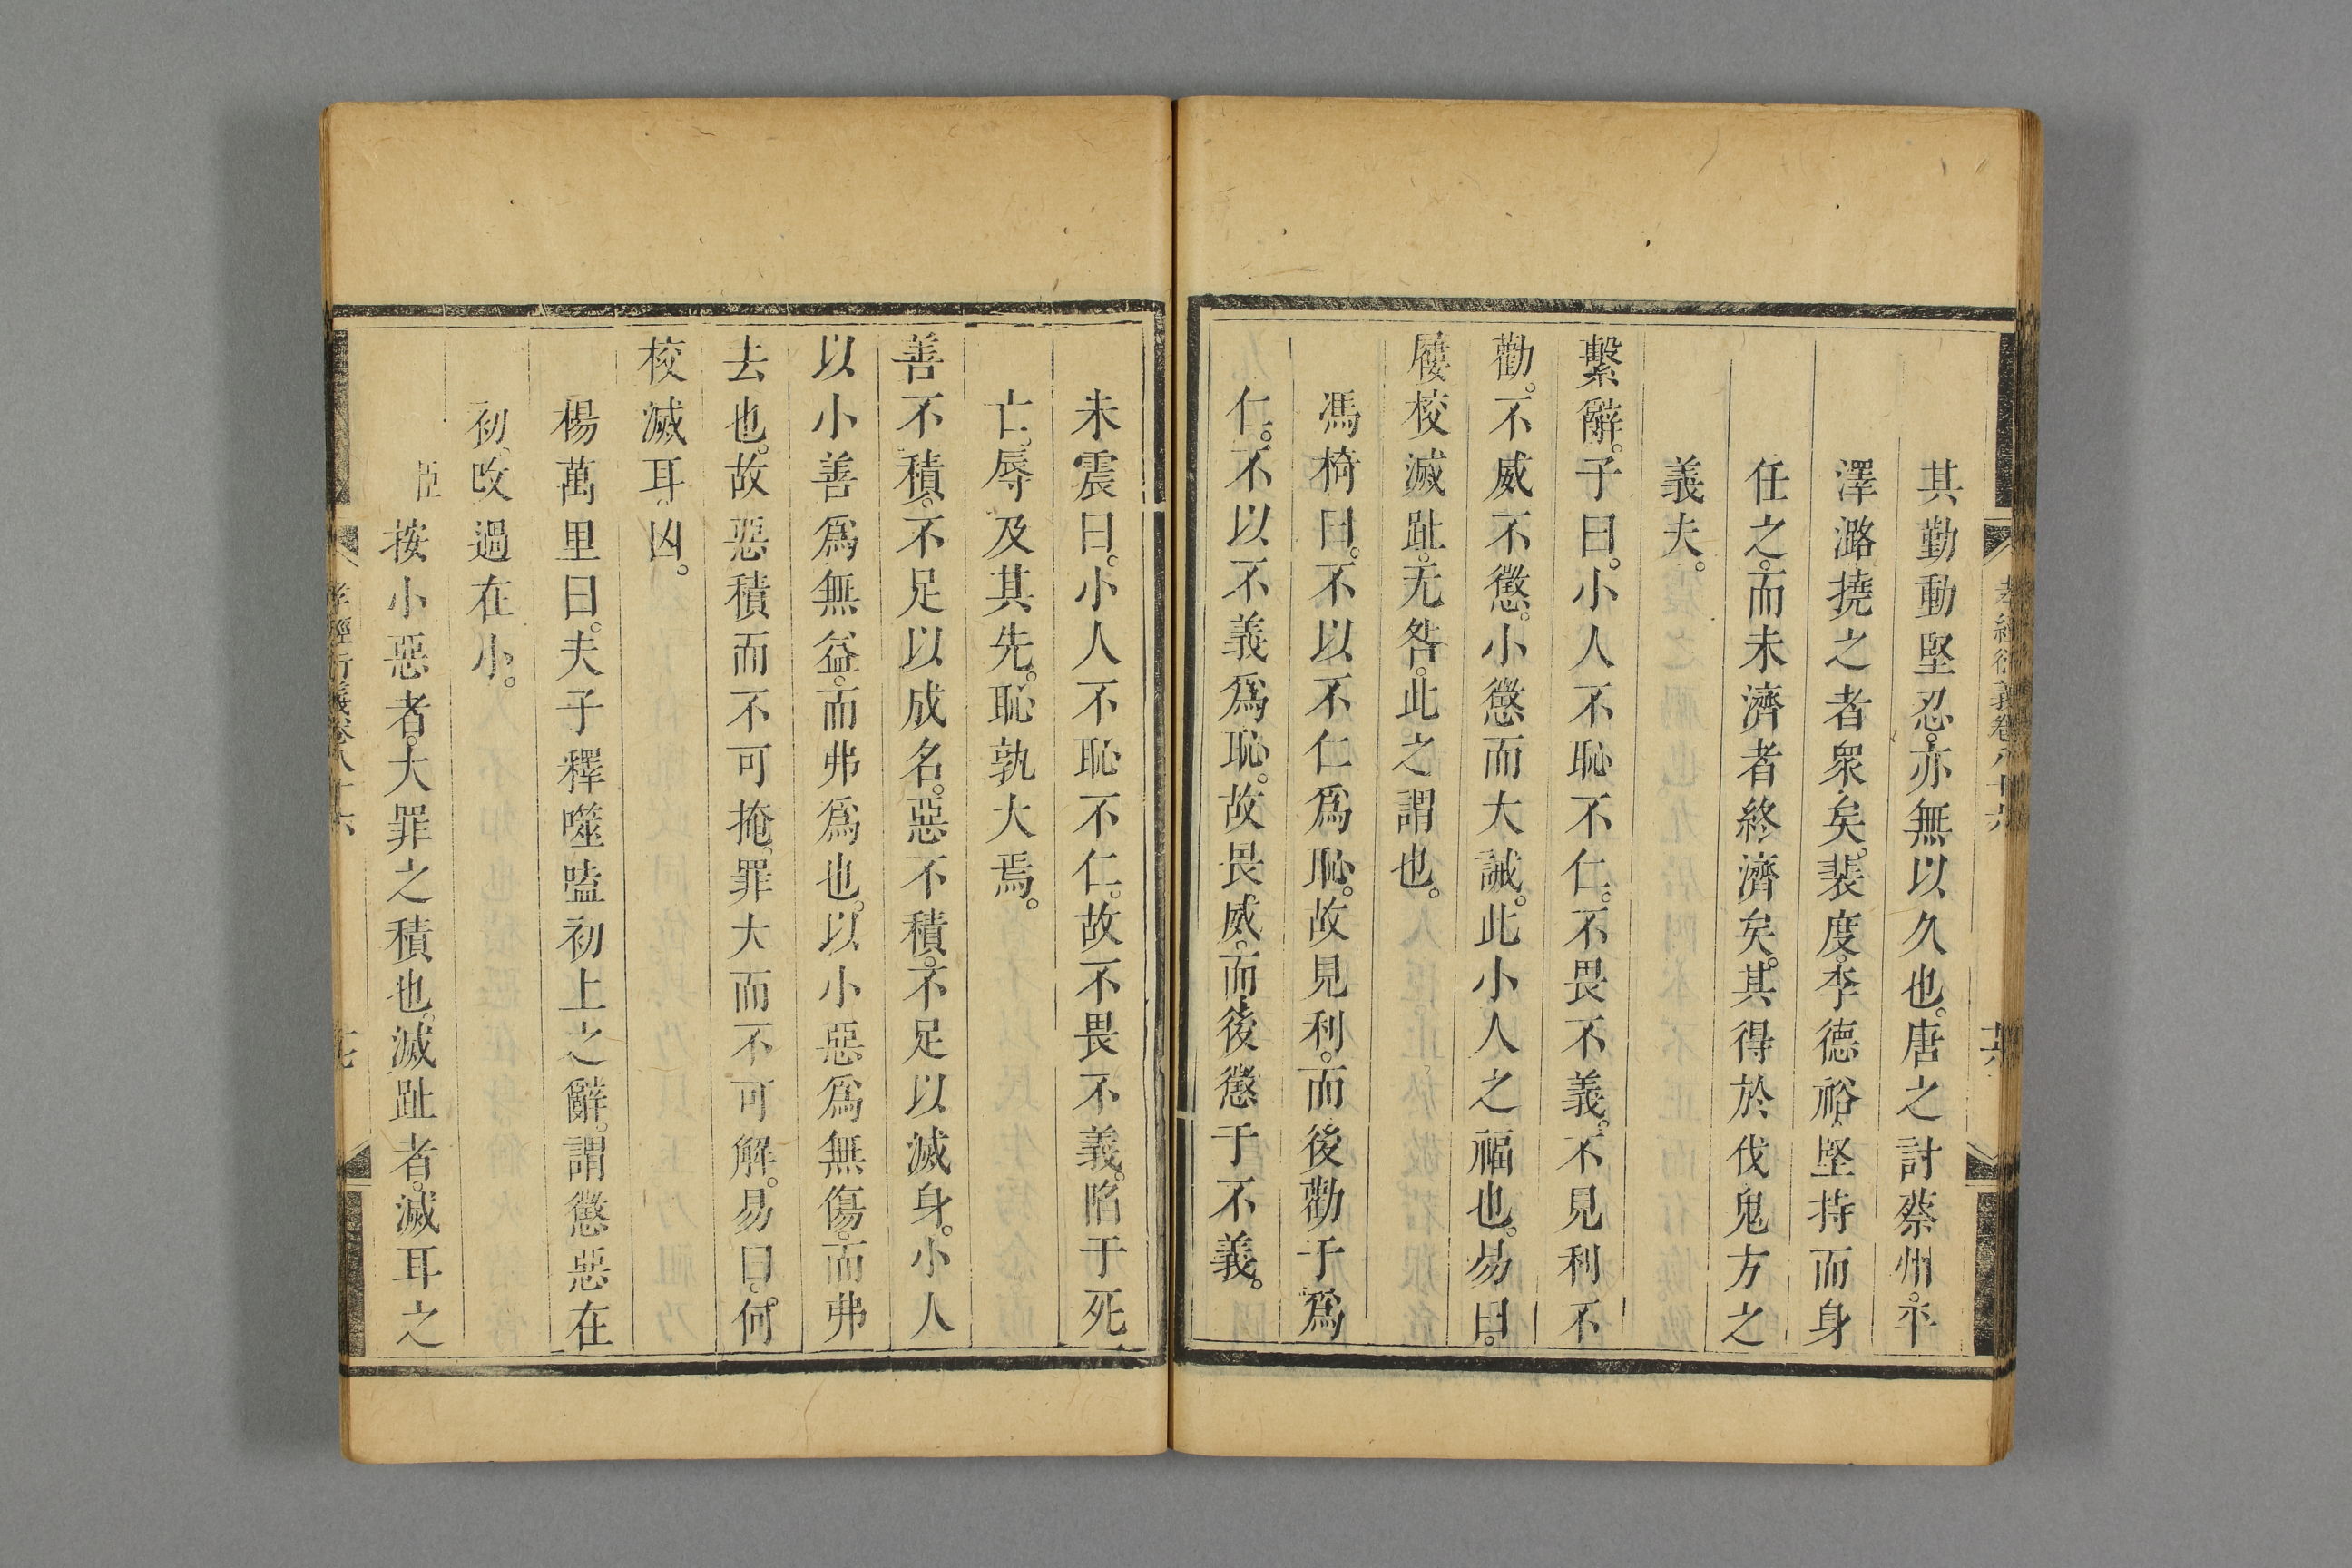 其勤動堅忍亦無以久也。唐之討蔡州。平
澤潞撓之者衆矣。裴度。李德裕堅持而身
任之。而未濟者終濟矣。其得於伐鬼方之
義夫。
繫辭。子曰。小人不恥不仁。不畏不義。不見利不
勸。不威不懲。小懲而大誡。此小人之福也。易曰。
屨校滅趾。无咎。此之謂也。
馮椅曰。不以不仁爲恥。故見利。而後勸于爲
仁。不以不義爲恥。故畏威。而後懲于不義。
孝經衍義卷八十六
未震曰。小人不恥不仁。故不畏不義。陷于死
亡。辱及其先。恥孰大焉。
善不積。不足以成名。惡不積。不足以滅身。小人
以小善爲無益。而弗爲也。以小惡爲無傷。而弗
去也。故惡積而不可掩。罪大而不可解。易曰。何
校滅耳。凶。
楊萬里曰。夫子釋噬嗑初上之辭。謂懲惡在
初。改過在小。
臣按小惡者。大罪之積也。滅趾者。滅耳之
孝經衍義卷八十六